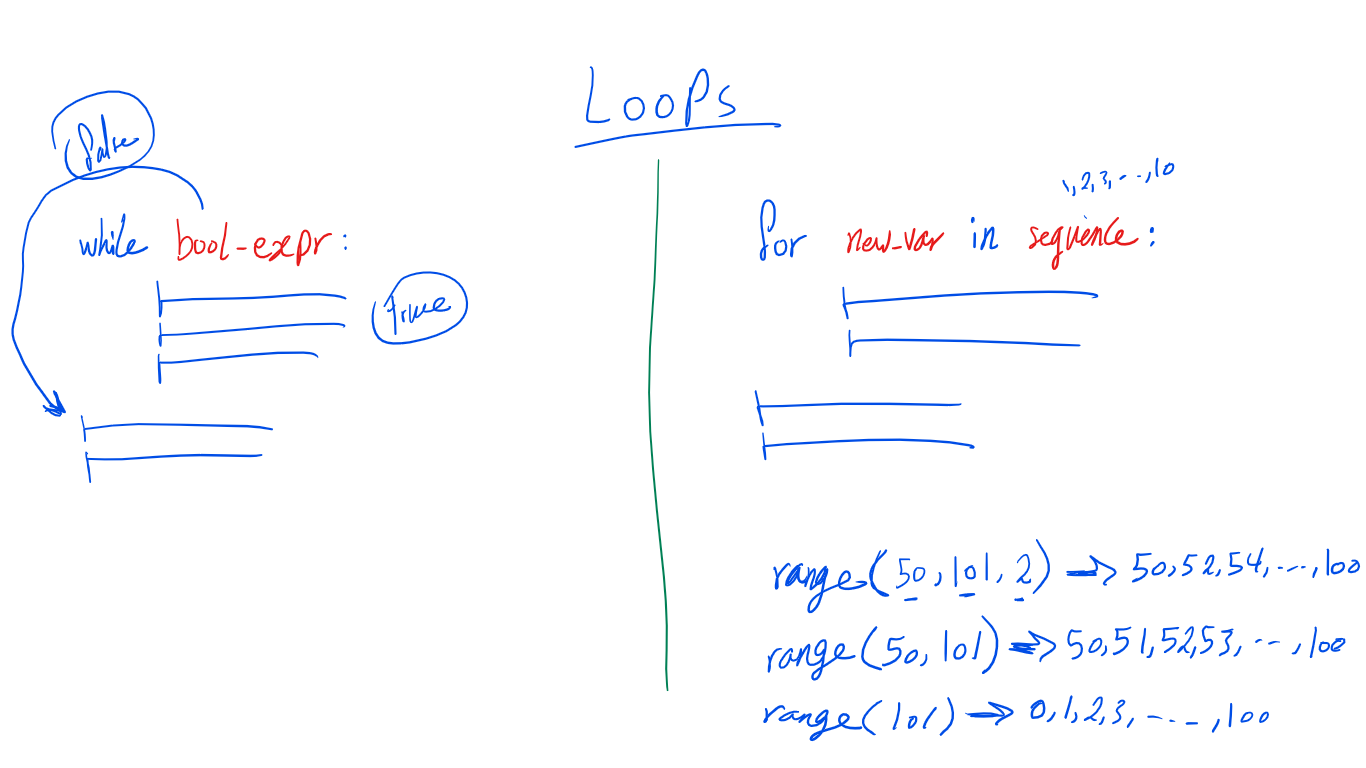 Loops
false
while bool-expr:
true
1,2,3,--..,10
for new-var in sequence:
range(50,101,2) => 50,52,54,...,100
range(50,101) => 50,51,52,53,...,100
range(101) => 0,1,2,3,....,100